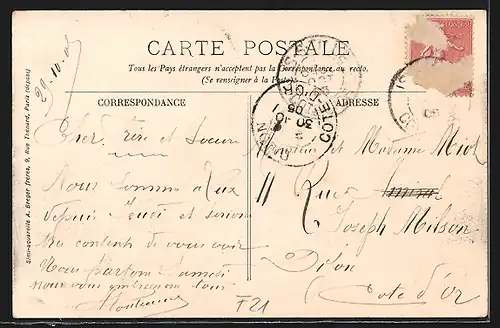 CARTE POSTALE
Tous les Pays étrangers n'acceptent pas la Correspondance au recto.
(Se renseigner à la Poste)
CORRESPONDANCE
ADRESSE
29-10-05
Simi-aquarelle A. Breger frères, 9, Rue Thénard, Paris (déposé)
Cher frère et Soeur
Nous sommes a
depuis Jeudi et serions
très contents de vous voir
Nous partons Samedi
nous vous embrassons tous
Monsieur et Madame Miol
11 Rue
Joseph Milson
Dijon
Cote d'Or
DIJON
COTE-D'OR
30
10
05
F21